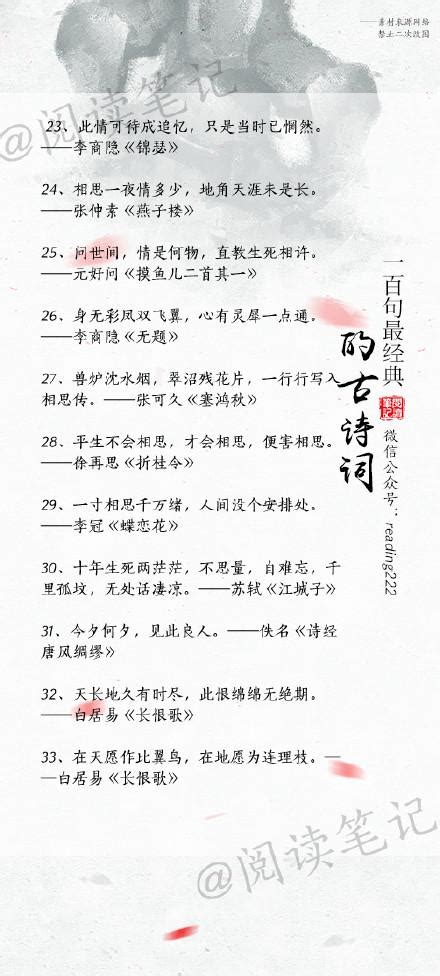 ——素材来源网络
禁止二次改图
@阅读笔记
23、此情可待成追忆，只是当时已惘然。
——李商隐《锦瑟》
24、相思一夜情多少，地角天涯未是长。
——张仲素《燕子楼》
25、问世间，情是何物，直教生死相许。
——元好问《摸鱼儿二首其一》
26、身无彩凤双飞翼，心有灵犀一点通。
——李商隐《无题》
27、兽炉沈水烟，翠沼残花片，一行行写入
相思传。——张可久《塞鸿秋》
28、平生不会相思，才会相思，便害相思。
——徐再思《折桂令》
29、一寸相思千万绪，人间没个安排处。
——李冠《蝶恋花》
30、十年生死两茫茫，不思量，自难忘，千
里孤坟，无处话凄凉。——苏轼《江城子》
31、今夕何夕，见此良人。——佚名《诗经
唐风绸缪》
32、天长地久有时尽，此恨绵绵无绝期。
——白居易《长恨歌》
33、在天愿作比翼鸟，在地愿为连理枝。—
—白居易《长恨歌》
一百句最经典
的古诗词
微信公众号：reading222
@阅读笔记